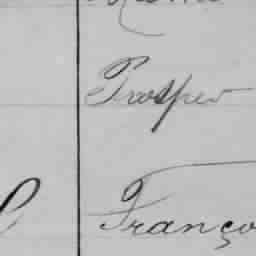 Prosper
Franço